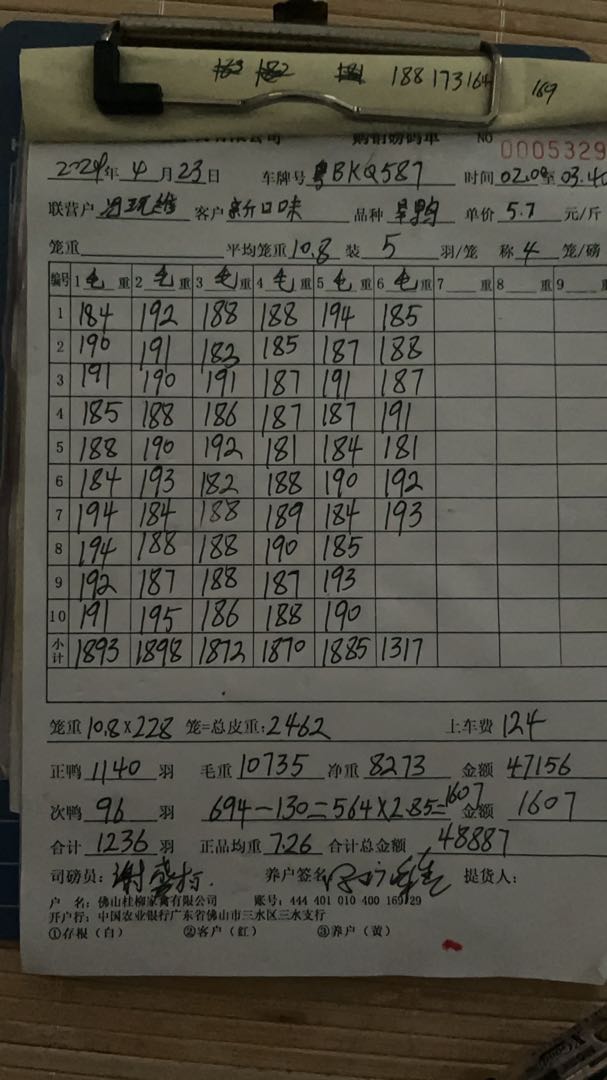 188 173 164 169
购销磅码单 NO 0005329
2024年 4月23日 车牌号 粤BKQ587 时间 02.00至03.40
联营户 客户 新口味 品种 单价 5.7 元/斤
笼重 平均笼重 10.8 装 5 羽/笼 称 4 笼/磅
编号 1 毛重 2 毛重 3 毛重 4 毛重 5 毛重 6 毛重 7 重 8 重 9 重
1 184 192 188 188 194 185
2 190 191 182 185 187 188
3 191 190 191 187 191 187
4 185 188 186 187 187 191
5 188 190 192 181 184 181
6 184 193 182 188 190 192
7 194 184 188 189 184 193
8 194 188 188 190 185
9 192 187 188 187 193
10 191 195 186 188 190
小计 1893 1898 1872 1870 1885 1317
笼重 10.8×228 笼=总皮重:2462 上车费 124
正鸭 1140 羽 毛重 10735 净重 8273 金额 47156
次鸭 96 羽 694-130=564×2.85=1607 金额 1607
合计 1236 羽 正品均重 7.26 合计总金额 48887
司磅员: 养户签名 提货人:
户 名:佛山桂柳家禽有限公司 账号:444 401 010 400 169 29
开户行:中国农业银行广东省佛山市三水区三水支行
①存根(白) ②客户(红) ③养户(黄)